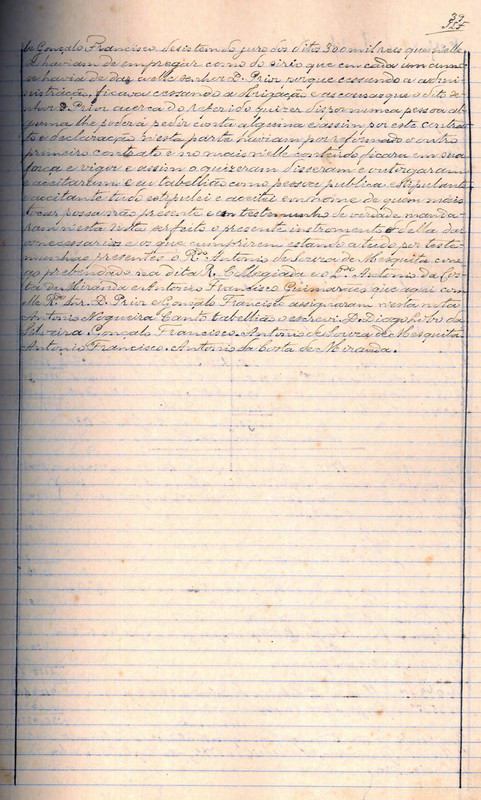 39
lo Gonçalo Francisco desistem do juro dos ditos 500 mil reis que
se haviam de empregar como do sirio que em cada um anno
se havia de dar a elle senhor D. Prior porque cessando a admi-
nistração, ficava cessando a obrigação e as cousas que o dito se-
nhor D. Prior acerca do referido quizer dispor nunca pessoa al-
guma lhe poderá pedir conta alguma e assim por este contra-
to e declaração nesta parte haviam por reformado o outro
primeiro contrato e no mais n'elle conteudo ficara em sua
força e vigor e assim o quizeram disseram e outorgaram
e aceitaram e eu tabellião como pessoa publica estipulante
e aceitante tudo estipulei e aceitei em nome de quem mais
tocar possa não presente e em testemunho de verdade manda-
ram n'esta nota ser feito o presente instrumento e d'ella dar
os necessarios e os que cumprirem estando a tudo por teste-
munhas presentes o R.do Antonio de Souza de Mesquita cone-
go prebendado na dita R. Collegiada e o L.do Antonio da Cos-
ta de Miranda e Antonio Francisco Guimarães que aqui com
elle R.do Snr. D. Prior e Gonçalo Francisco assignaram n'esta nota
Antonio Nogueira Canto tabellião o escrevi. D. Diogo Lobo da
Silveira. Gonçalo Francisco. Antonio de Souza de Mesquita.
Antonio Francisco. Antonio da Costa de Miranda.